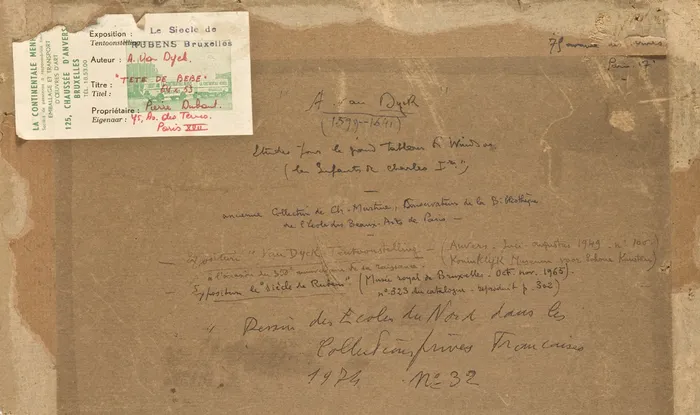 LA CONTINENTALE MEN
EMBALLAGE ET TRANSPORT
D'ŒUVRES D'ART
125, CHAUSSÉE D'ANVERS
BRUXELLES
Exposition : Le Siècle de
Tentoonstelling RUBENS Bruxelles
Auteur : A. Van Dyck.
Titre : "TETE DE BEBE"
Titel :
Propriétaire : Pierre Dubaut.
Eigenaar : 45, Av. des Ternes.
Paris XVII
Paris. 17e
A. Van Dyck
(1599-1641)
Etudes pour le grand tableau de Windsor
(les Enfants de Charles Ier)
ancienne Collection de Ch. Martine, Conservateur de la Bibliothèque
de l'école des Beaux-Arts de Paris —
Exposition "Van Dyck Tentoonstelling — (Anvers. août 1949 - n° 100
à l'occasion du 350e anniversaire de sa naissance. (Koninklijk Museum voor Schone Kunsten)
Exposition le "Siècle de Rubens" (Musée royal de Bruxelles. Oct. nov. 1965.
n° 323 du catalogue - reproduit p. 302)
" Dessins des Ecoles du Nord dans les
Collections privées Françaises
1974 N° 32